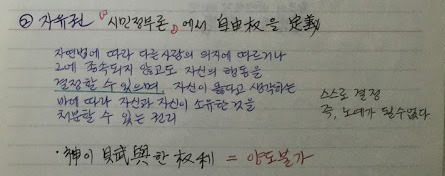 ② 자유권 『시민정부론』에서 自由权을 定義
자연법에 따라 다른사람의 의지에 따르거나
그에 종속되지 않고도 자신의 행동을
결정할 수 있으며, 자신이 옳다고 생각하는
바에 따라 자신과 자신이 소유한 것을
처분할 수 있는 권리
스스로 결정
즉, 노예가 될수없다
· 神이 賦與한 权利 = 양도불가